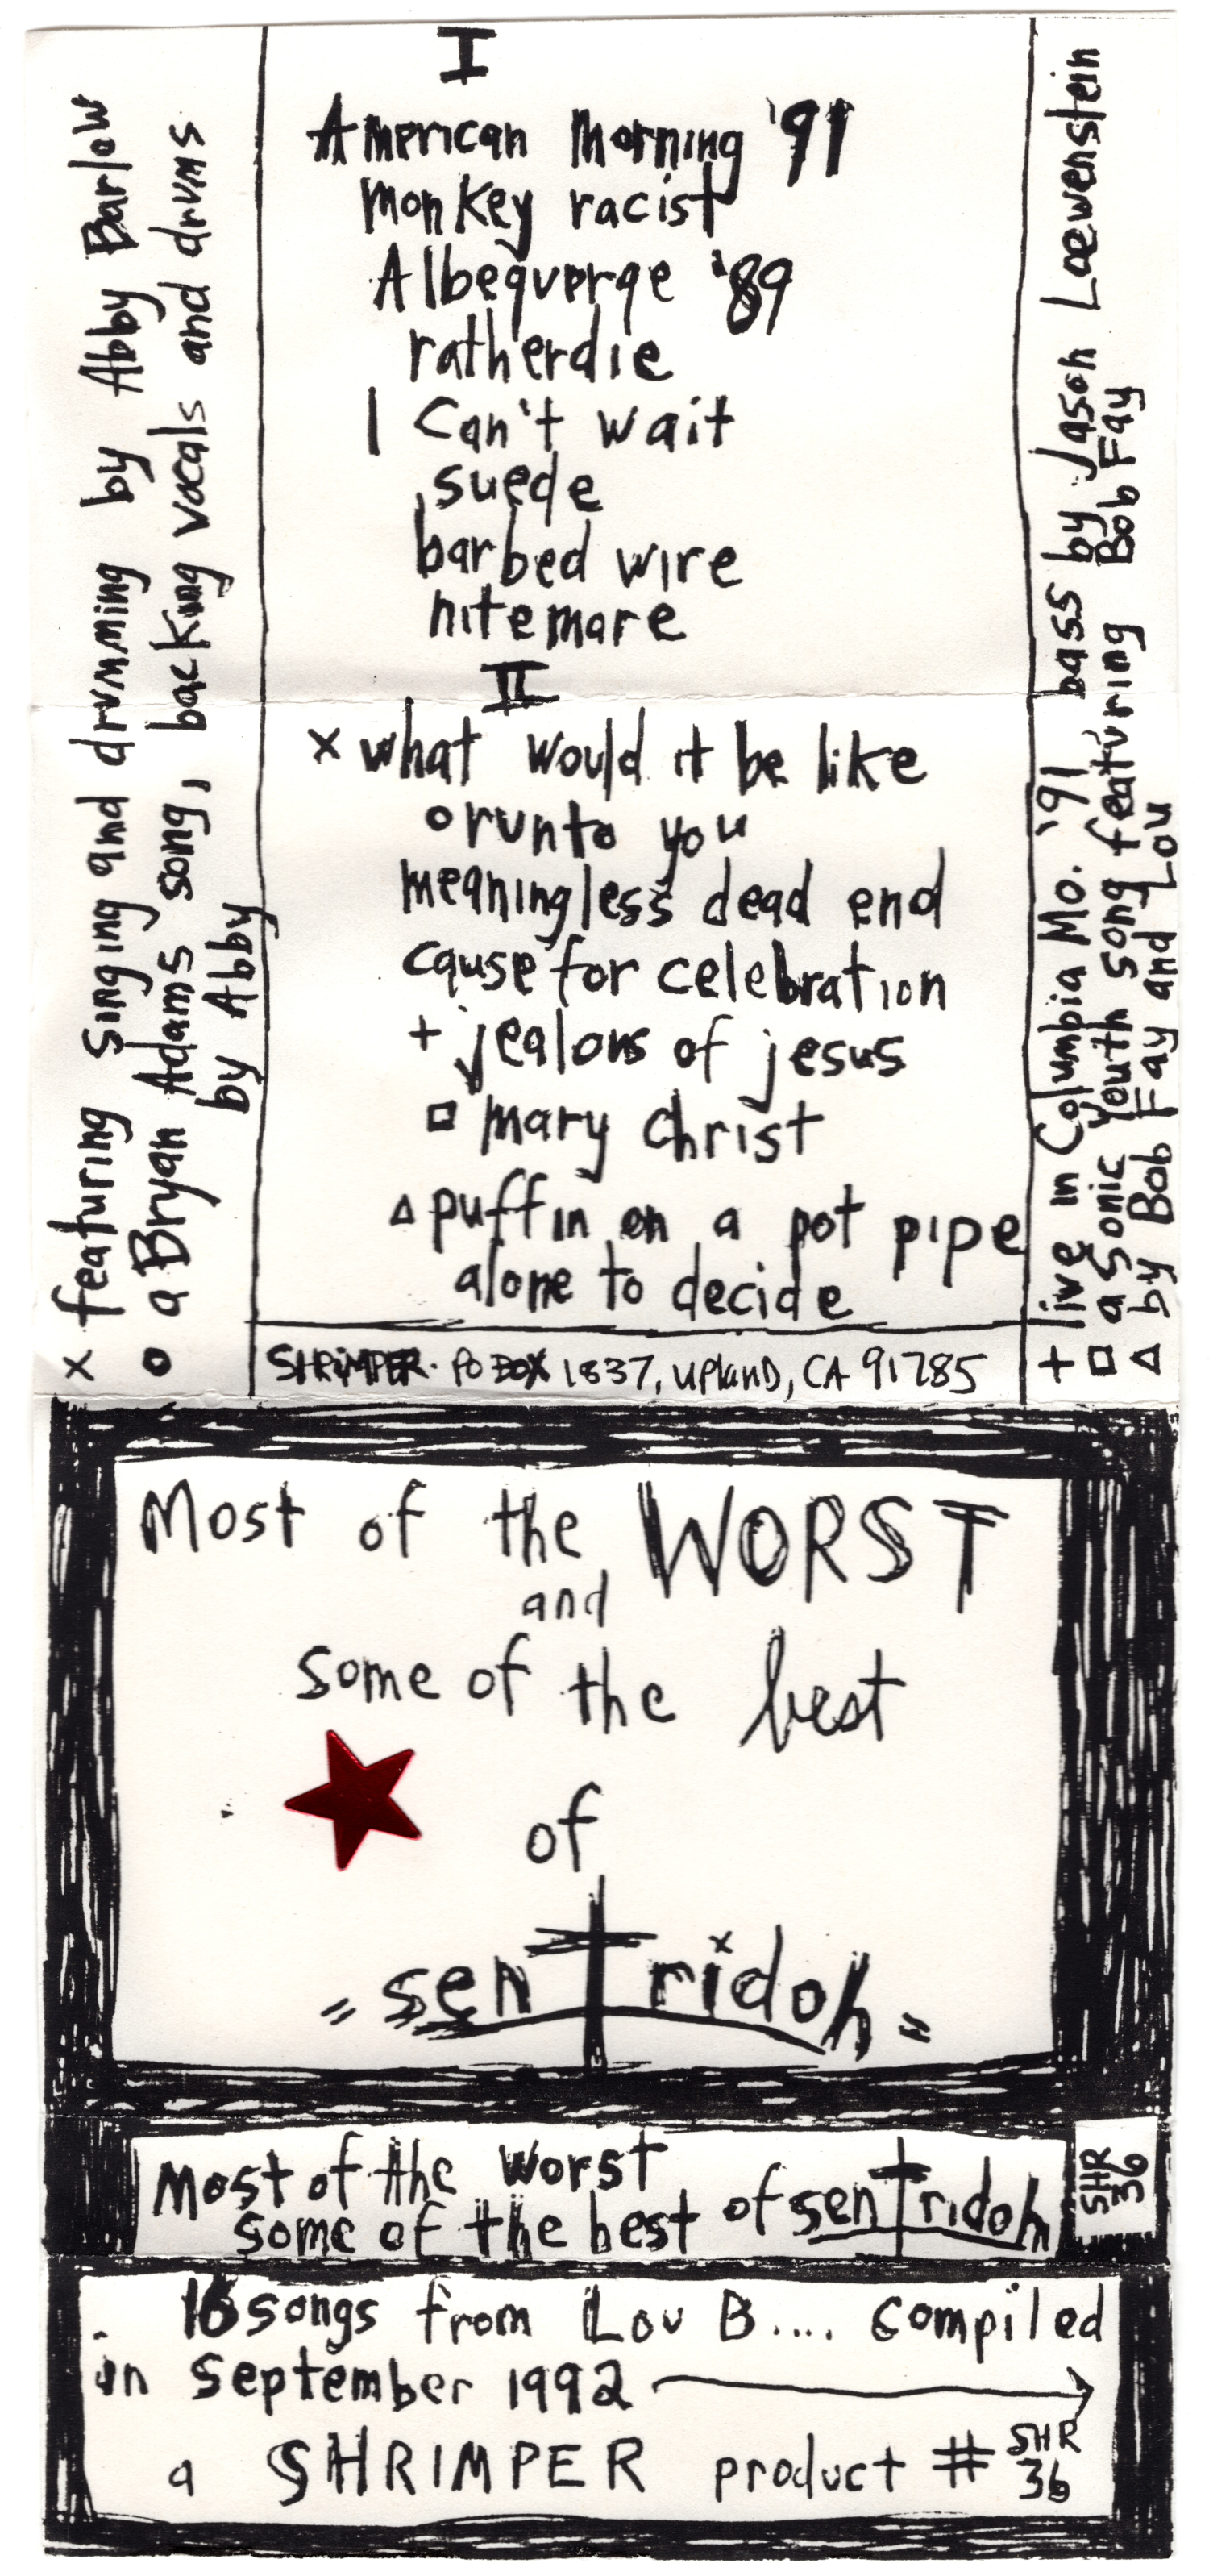 I
American Morning '91
monkey racist
Albequerqe '89
ratherdie
I Can't wait
suede
barbed wire
nitemare
II
x what would it be like
o runto you
meaningless dead end
cause for celebration
+ jealous of jesus
□ mary christ
△ puffin on a pot pipe
alone to decide
SHRIMPER. PO BOX 1837, UPLAND, CA 91785
x featuring singing and drumming by Abby Barlow
o a Bryan Adams song, backing vocals and drums
by Abby
+ live in Columbia Mo. '91 bass by Jason Loewenstein
□ a Sonic Youth song featuring Bob Fay
△ by Bob Fay and Lou
Most of the WORST
and
some of the best
of
"senTridoh"
Most of the Worst
some of the best of senTridoh
SHR
36
16 songs from Lou B.... compiled
in september 1992 →
a SHRIMPER product # SHR
36